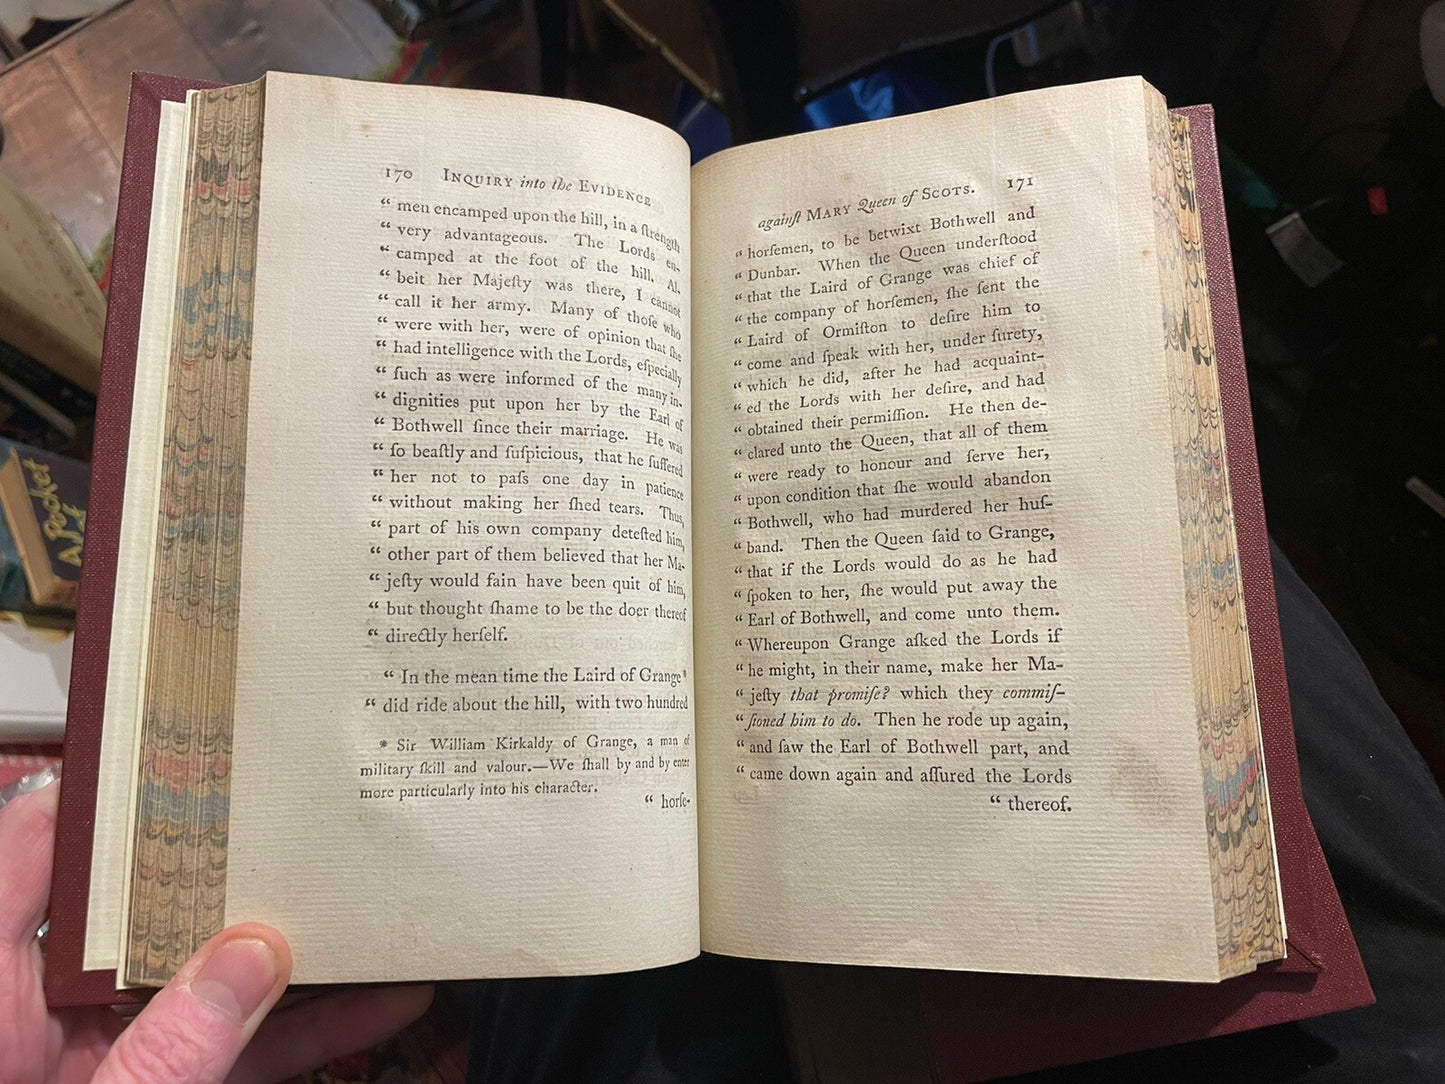 170 INQUIRY into the EVIDENCE
“ men encamped upon the hill, in a ſtrength
“ very advantageous. The Lords en-
“ camped at the foot of the hill. Al-
“ beit her Majeſty was there, I cannot
“ call it her army. Many of thoſe who
“ were with her, were of opinion that ſhe
“ had intelligence with the Lords, eſpecially
“ ſuch as were informed of the many in-
“ dignities put upon her by the Earl of
“ Bothwell ſince their marriage. He was
“ ſo beaſtly and ſuſpicious, that he ſuffered
“ her not to paſs one day in patience
“ without making her ſhed tears. Thus,
“ part of his own company deteſted him,
“ other part of them believed that her Ma-
“ jeſty would fain have been quit of him,
“ but thought ſhame to be the doer thereof
“ directly herſelf.
“ In the mean time the Laird of Grange*
“ did ride about the hill, with two hundred
* Sir William Kirkaldy of Grange, a man of
military ſkill and valour.—We ſhall by and by enter
more particularly into his character.
“ horſe-
againſt MARY Queen of SCOTS. 171
“ horſemen, to be betwixt Bothwell and
“ Dunbar. When the Queen underſtood
“ that the Laird of Grange was chief of
“ the company of horſemen, ſhe ſent the
“ Laird of Ormiſton to deſire him to
“ come and ſpeak with her, under ſurety,
“ which he did, after he had acquaint-
“ ed the Lords with her deſire, and had
“ obtained their permiſſion. He then de-
“ clared unto the Queen, that all of them
“ were ready to honour and ſerve her,
“ upon condition that ſhe would abandon
“ Bothwell, who had murdered her huſ-
“ band. Then the Queen ſaid to Grange,
“ that if the Lords would do as he had
“ ſpoken to her, ſhe would put away the
“ Earl of Bothwell, and come unto them.
“ Whereupon Grange aſked the Lords if
“ he might, in their name, make her Ma-
“ jeſty that promiſe? which they commiſ-
“ ſioned him to do. Then he rode up again,
“ and ſaw the Earl of Bothwell part, and
“ came down again and aſſured the Lords
“ thereof.
Pocket